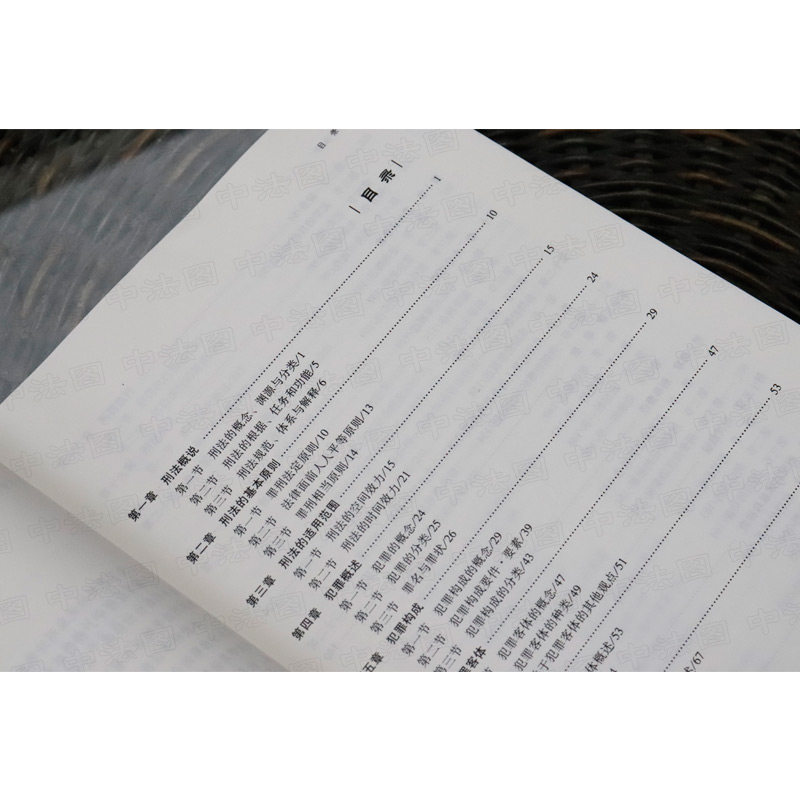 目 录
目 录
第一章 刑法概说 1
第一节 刑法的概念、渊源与分类/1
第二节 刑法的根据、任务和功能/5
第三节 刑法规范、体系与解释/6
第二章 刑法的基本原则 10
第一节 罪刑法定原则/10
第二节 法律面前人人平等原则/13
第三节 罪刑相当原则/14
第三章 刑法的适用范围 15
第一节 刑法的空间效力/15
第二节 刑法的时间效力/21
第四章 犯罪概述 24
第一节 犯罪的概念/24
第二节 犯罪的分类/25
第三节 罪名与罪状/26
五章 犯罪构成 29
第一节 犯罪构成的概念/29
第二节 犯罪构成要件·要素/39
第三节 犯罪构成的分类/43
罪客体 47
犯罪客体的概念/47
节 犯罪客体的种类/49
于犯罪客体的其他观点/51
53
体概述/53
述/67
中法图